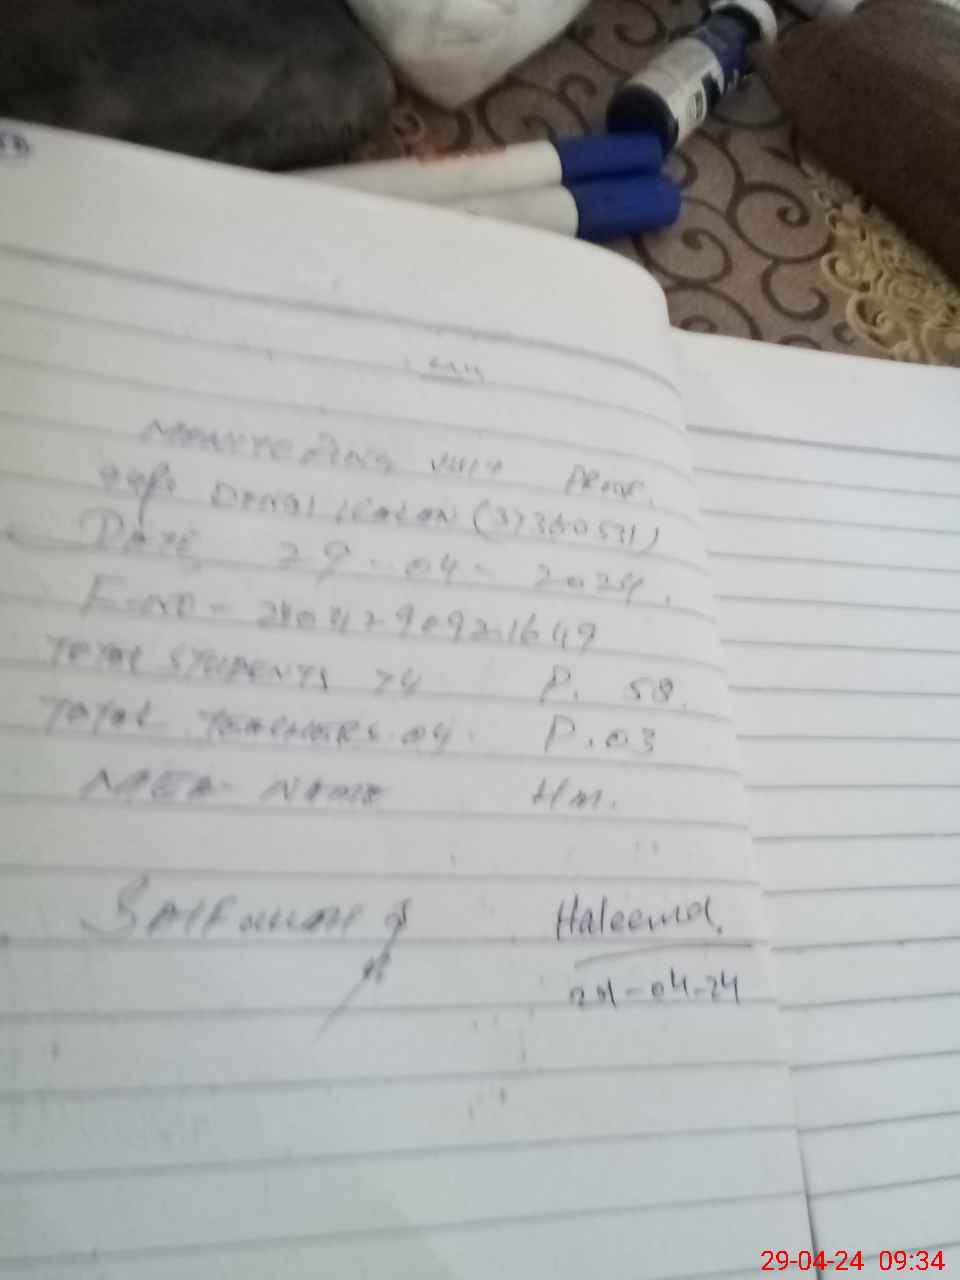 MONITORING VISIT PROOF.
GGPS DHOK KALAN (37360531)
DATE 29-04-2024.
TOTAL STUDENTS 74 P. 58.
TOTAL TEACHERS. 04. P. 03
MEA- NAME HM.
SAIFULLAH Haleema.
29-04-24
29-04-24 09:34